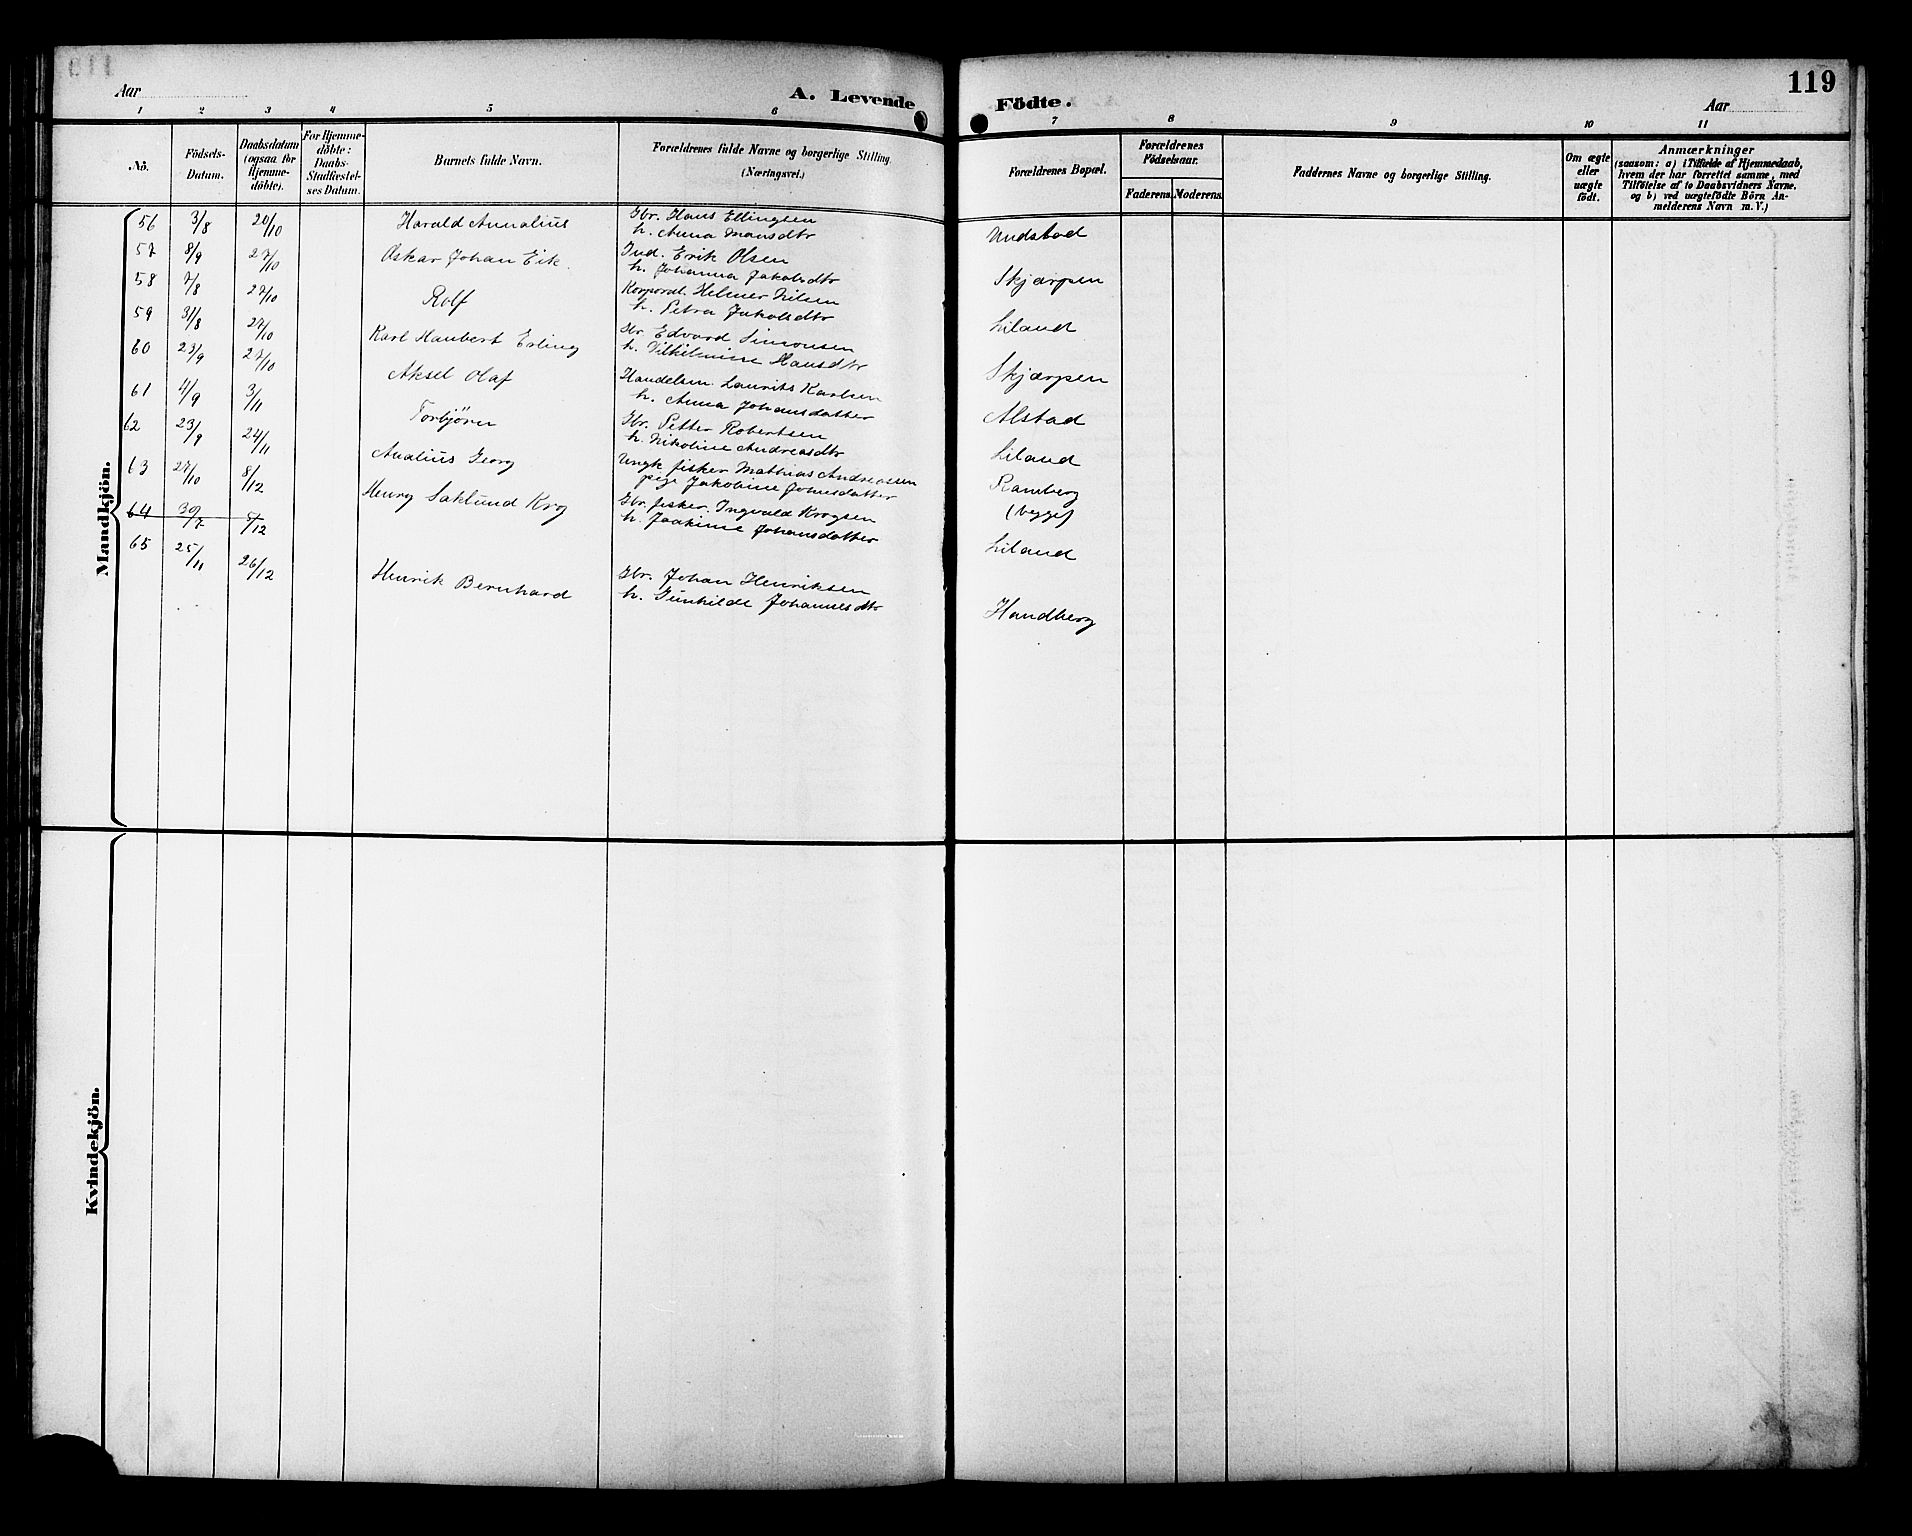 119
Aar
A. Levende Födte.
Aar
1 2 3 4 5 6 7 8 9 10 11
No.
Födsels-Datum.
Daabsdatum (ogsaa for Hjemme-döbte).
For Hjemme-döbte: Daabs-Stadfæstel-ses Datum.
Barnets fulde Navn.
Forældrenes fulde Navne og borgerlige Stilling.
(Næringsvei.)
Forældrenes Bopæl.
Forældrenes Födselsaar.
Faderens. Moderens.
Faddernes Navne og borgerlige Stilling.
Om ægte eller uægte födt.
Anmærkninger
(saasom: a) i Tilfælde af Hjemmedaab,
hvem der har forrettet samme, med
Tilföielse af to Daabsvidners Navne,
og b) ved uægtefödte Börn An-
melderens Navn m. V.)
Mandkjön.
56 3/8 20/10 Harald Annalius Gbr. Hans Ellingsen
h. Anna Mansdtr Undstad
57 8/9 27/10 Oskar Johan Eik. Ind. Erik Olsen
h. Johanna Jakobsdtr Skjærpen
58 7/8 27/10 Rolf Korporal. Helmer Nilsen
h. Petra Jakobsdtr Liland
59 31/8 27/10 Karl Haubert Erling Gbr Edvard Simonsen
h. Vilhelmine Hansdtr Skjærpen
60 23/9 27/10 Aksel Olaf Handelsm. Laurits Karlsen
h. Anna Johansdatter Alstad
61 4/9 3/11 Torbjörn Gbr. Petter Robertsen
h. Nikoline Andreasdtr Liland
62 23/9 24/11 Analius Georg Ungk fisker Mathias Andreasen
pige Jakobine Jonesdatter Ramberg
(begge)
63 27/10 8/12 Henry Saklund Krog Gbr. fisker. Ingvald Krogsen
h. Joakime Johansdatter Liland
64 30/7 5/12
65 25/11 26/12 Henrik Bernhard Gbr. Johan Henriksen
h. Gunhilde Johannesdtr Handberg
Kvindekjön.